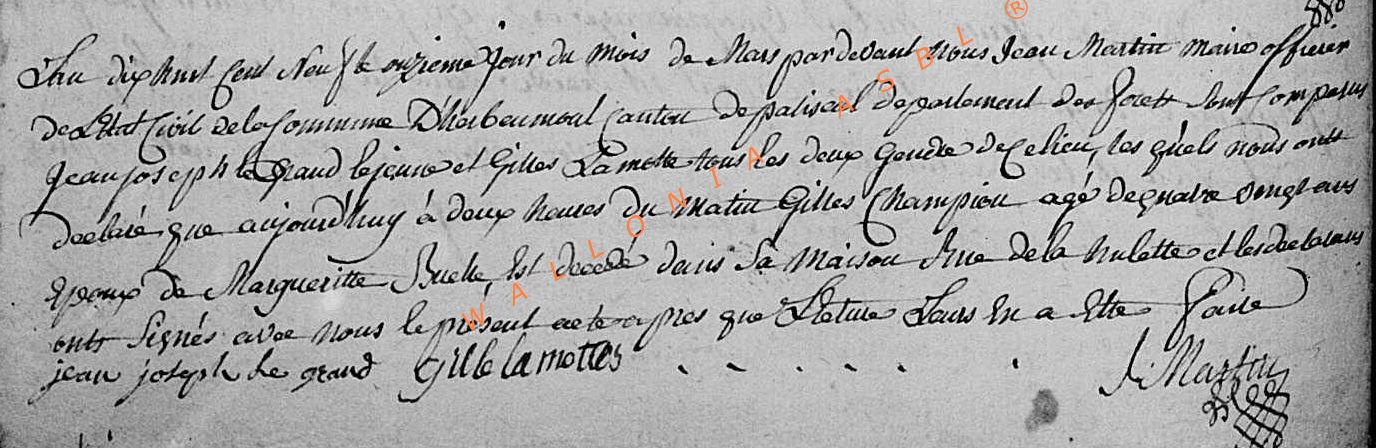 L'an dix huit Cent Neuf le onzieme Jour du mois de Mars par devant Nous Jean Martin maire officier
de L'Etat Civil de la Commune D'herbeumont Canton de paliseul departement des forets Sont Comparus
Jean joseph le Grand le jeune et Gilles Lamotte tous les deux Gendre de Ce lieu, les quels nous onts
declaré que aujourd'huy á deux heures du matin Gilles Champion agé de quatre vingt ans
Epoux de Margueritte est decedé dans Sa Maison Rue de la et les declarans
onts Signés avec nous le présent acte apres que Lecture Leurs En a Etté Faite
jean joseph Le grand Gille lamottes J: Martin
WALLONIA ASBL ®